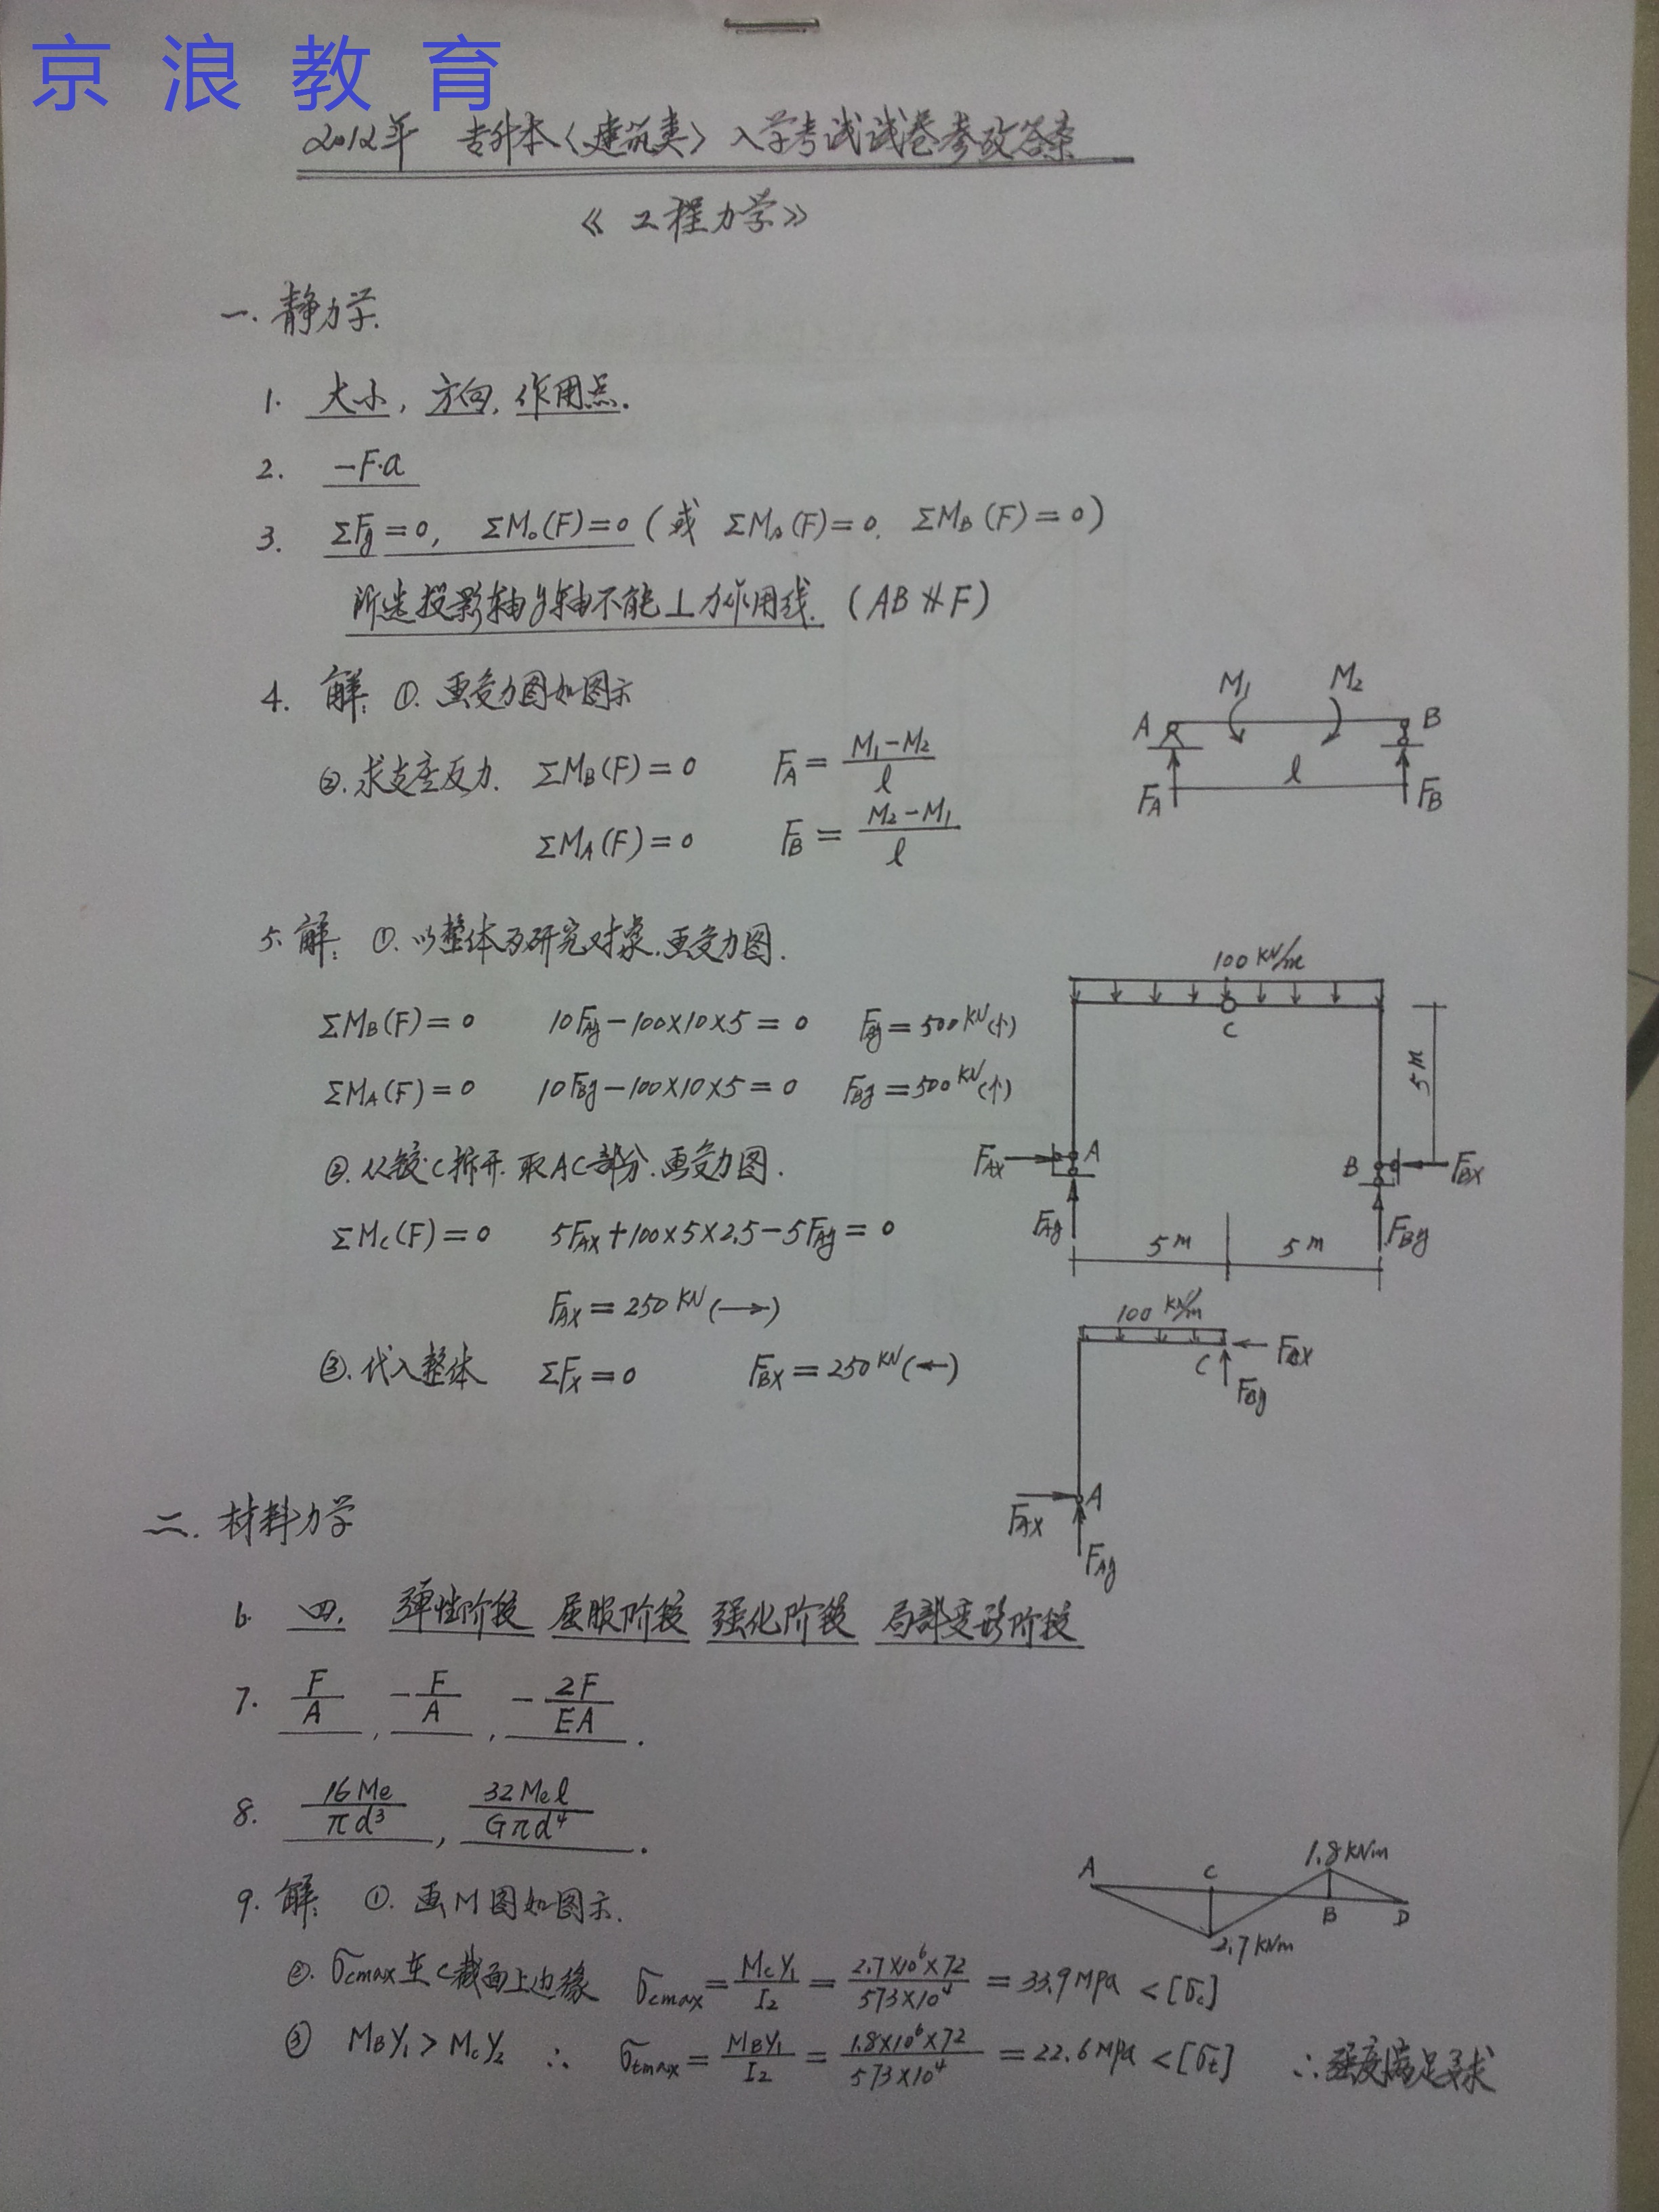 京浪教育
2012年 专升本〈建筑类〉入学考试试卷参改答案
《工程力学》
一. 静力学.
1. 大小, 方向, 作用点.
2. -F·a
3. ΣFy=0, ΣMo(F)=0 (或 ΣMA(F)=0. ΣMB(F)=0)
所选投影轴y轴不能⊥力作用线. (AB∦F)
4. 解: ①. 画受力图如图示
②. 求支座反力. ΣMB(F)=0 FA=(M1-M2)/l
ΣMA(F)=0 FB=(M2-M1)/l
M1 M2
A B
l
FA FB
5. 解: ①. 以整体为研究对象. 画受力图.
ΣMB(F)=0 10FAy-100×10×5=0 FAy=500KN(↑)
ΣMA(F)=0 10FBy-100×10×5=0 FBy=500KN(↑)
②. 从铰C拆开. 取AC部分. 画受力图.
ΣMC(F)=0 5FAX+100×5×2.5-5FAy=0
FAX=250KN(→)
③. 代入整体 ΣFX=0 FBX=250KN(←)
100KN/m
C
5m
FAX A B FBX
FAy FBy
5m 5m
100KN/m
C FCX
FBy
A
FAX
FAy
二. 材料力学
6. 四. 弹性阶段 屈服阶段 强化阶段 局部变形阶段
7. F/A, -F/A, -2F/EA.
8. 16Me/πd³, 32Mel/Gπd⁴.
9. 解: ①. 画M图如图示.
1.8KNm
A C B D
2.7KNm
②. σcmax在C截面上边缘 σcmax=MCY1/IZ=2.7×10⁶×72/573×10⁴=33.9MPa<[σc]
③ MBY1>MCY2 ∴ σtmax=MBY1/IZ=1.8×10⁶×72/573×10⁴=22.6MPa<[σt] ∴强度满足要求